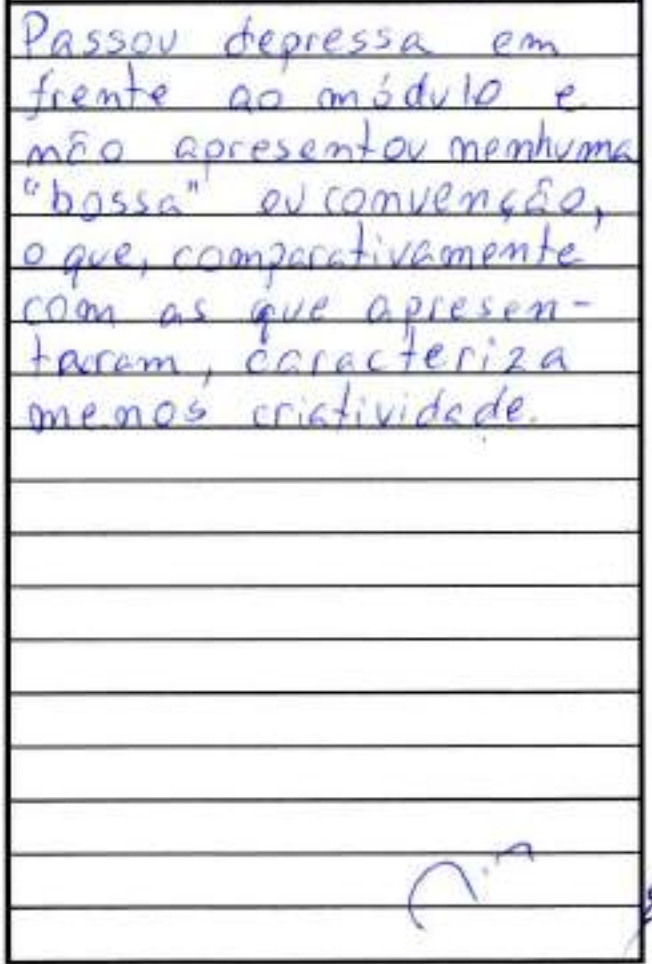 Passou depressa em
frente ao módulo e
não apresentou nenhuma
"bossa" ou convenção,
o que, comparativamente
com as que apresen-
taram, caracteriza
menos criatividade.